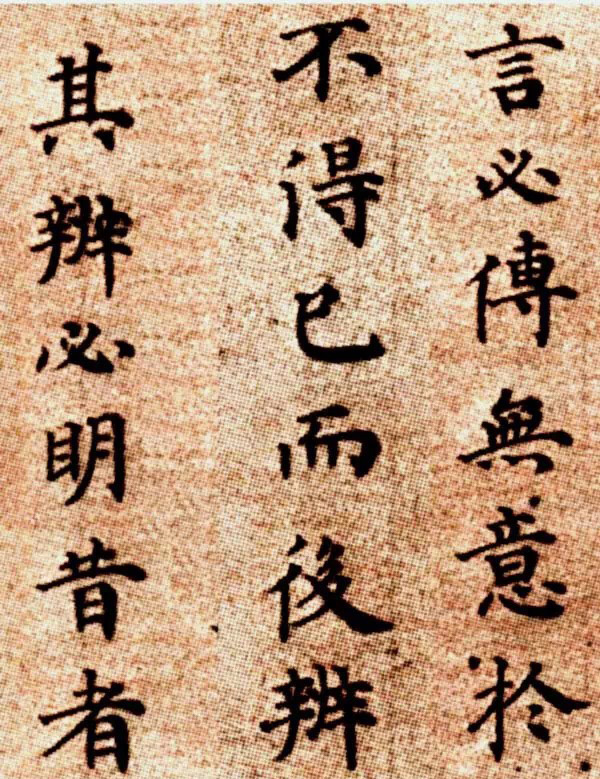 言必傳無意於
不得已而後辨
其辨必明昔者